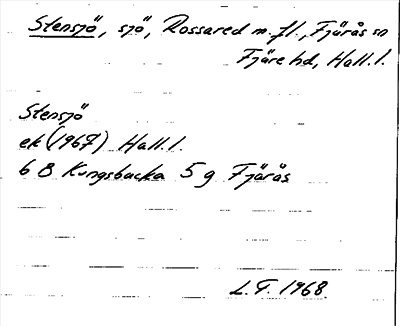 Stensjö, sjö, Rossared m.fl., Fjärås sn
Fjäre hd, Hall.l.
Stensjö
ek (1967) Hall.l.
6 B Kungsbacka 5 g Fjärås
L.T. 1968